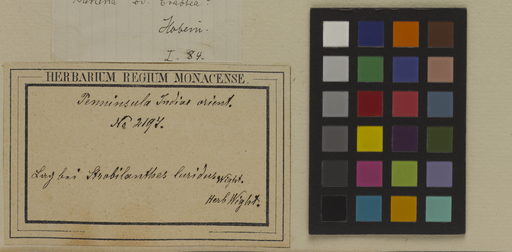 Hobein.
I. 84.
HERBARIUM REGIUM MONACENSE.
Peninsula Indiae orient.
No 2197.
Lag bei Strobilanthes luridus Wight.
Herb Wight.